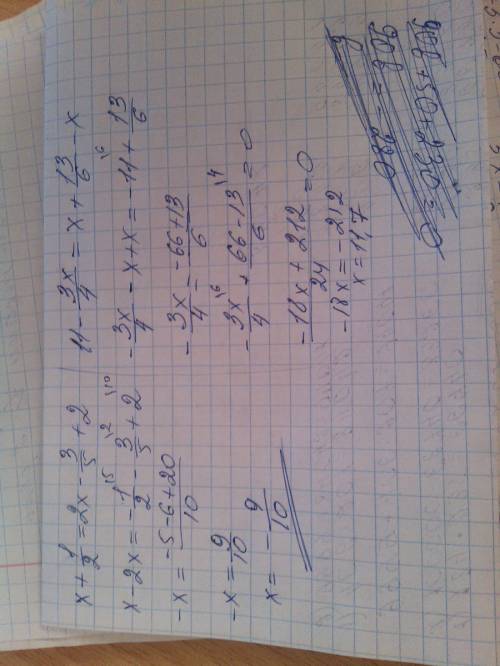 x + 1/2 = 2x - 3/5 + 2
x - 2x = -1/2 \5 - 3/5 \2 + 2 \10
-x = (-5-6+20)/10
-x = 9/10
x = -9/10
11 - 3x/4 = x + 13/6 - x
-3x/4 - x + x = -11 \6 + 13/6
-3x/4 = (-66+13)/6
-3x/4 \6 + (66-13)/6 \4 = 0
(-18x + 212)/24 = 0
-18x = -212
x = 11,7